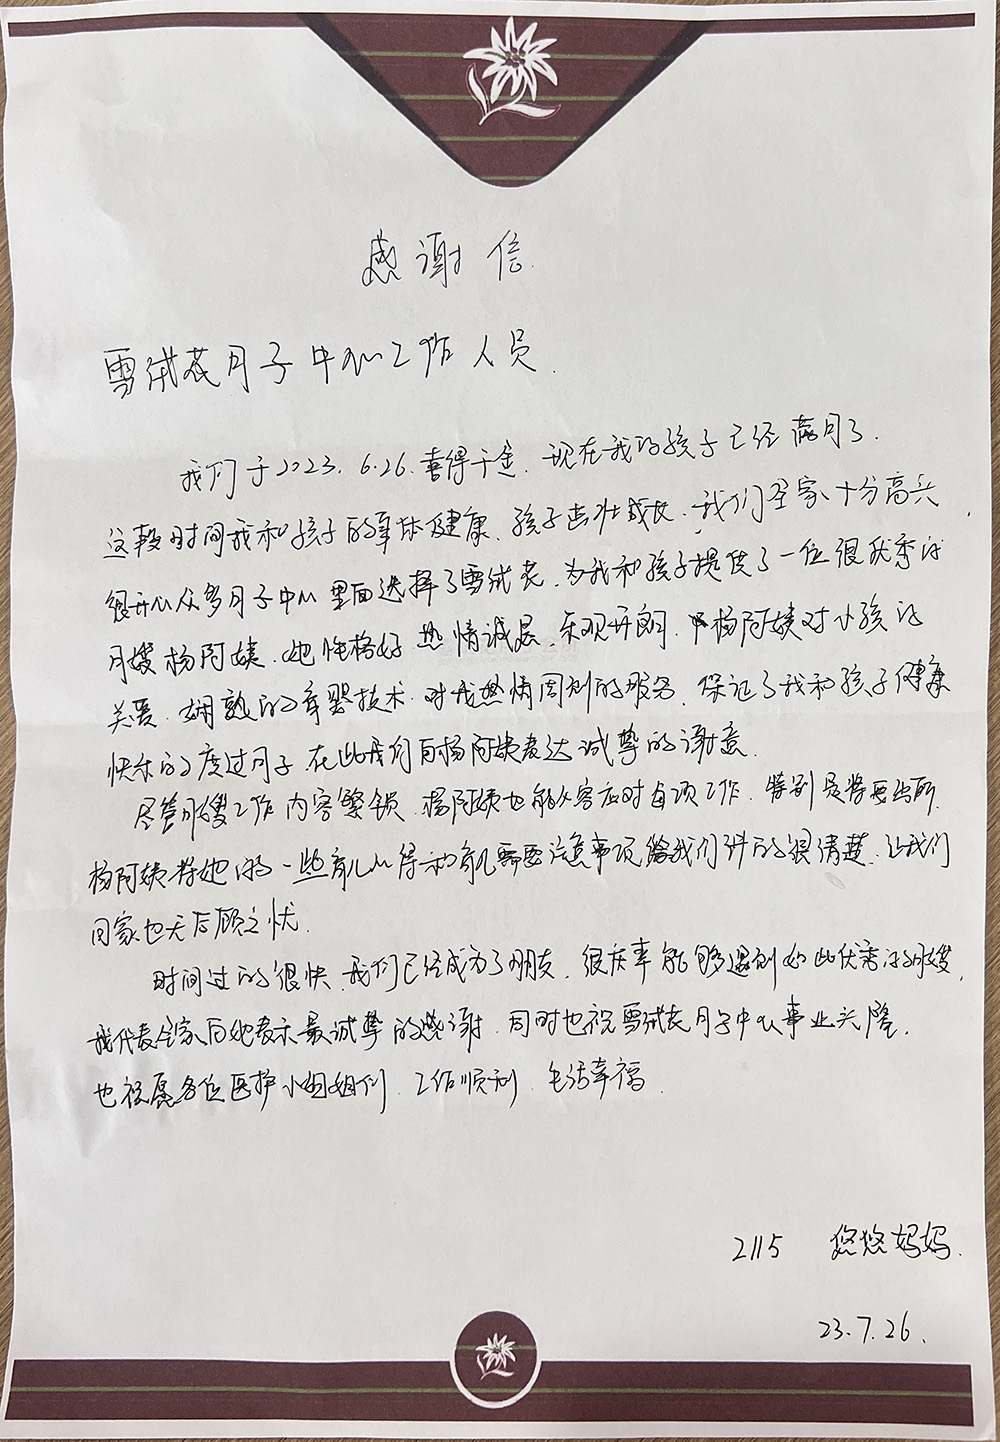 感谢信
雪绒花月子中心工作人员
我们于2023.6.26.喜得千金.现在我的孩子已经满月了.
这段时间我和孩子的身体健康.孩子茁壮成长.我们全家十分高兴,
很开心众多月子中心里面选择了雪绒花.为我和孩子提供了一位很优秀的
月嫂杨阿姨.她性格好 热情诚恳.乐观开朗.杨阿姨对小孩的
关爱.娴熟的育婴技术.对我热情周到的服务.保证了我和孩子健康
快乐的度过月子.在此我们向杨阿姨表达诚挚的谢意.
尽管月嫂工作内容繁锁.杨阿姨也能从容应对每项工作.特别是将要出所.
杨阿姨将她的一些育儿心得和育儿需要注意事项给我们讲的很清楚.让我们
回家也无后顾之忧.
时间过的很快.我们已经成为了朋友.很庆幸能够遇到如此优秀的月嫂,
我代表全家向她表示最诚挚的感谢.同时也祝雪绒花月子中心事业兴隆.
也祝愿各位医护小姐姐们.工作顺利.生活幸福.
2115 悠悠妈妈.
23.7.26.